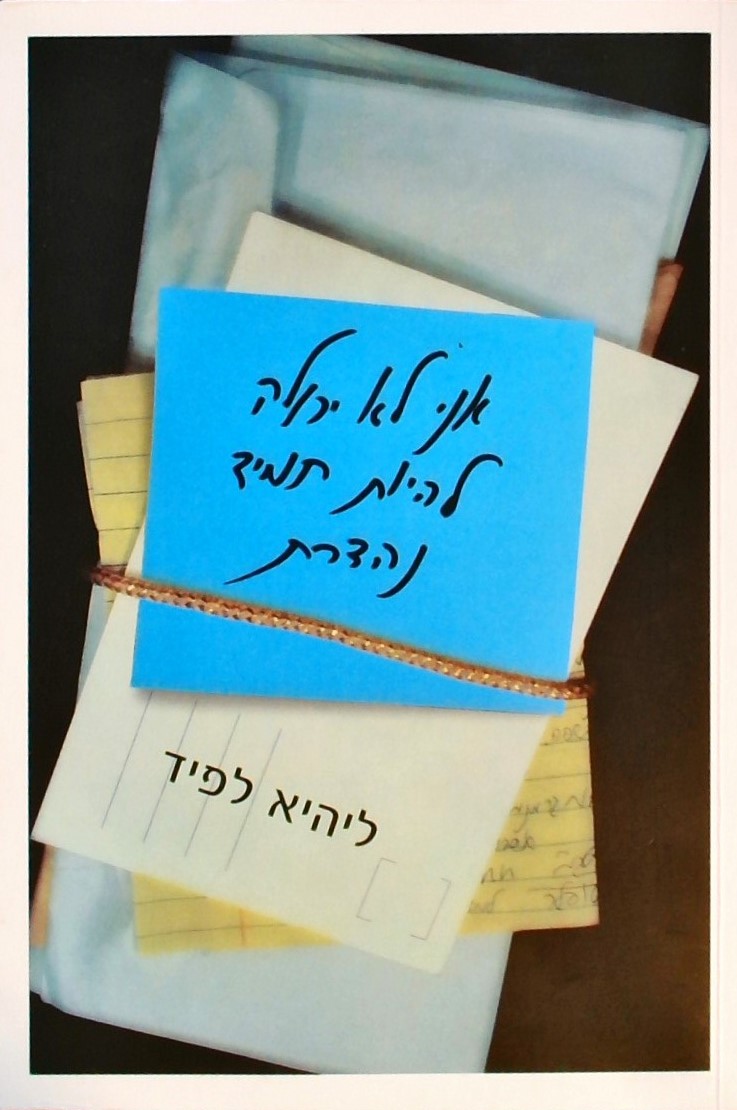 אני לא יכולה
להיות תמיד
נהדרת
ליהיא לפיד